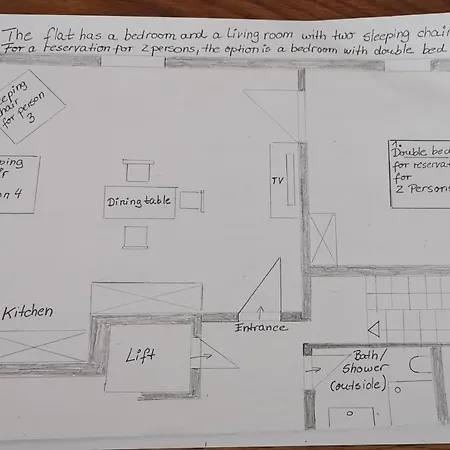 The flat has a bedroom and a living room with two sleeping chair
For a reservation for 2 persons, the option is a bedroom with double bed
chair
for person
3
4
Dining table
TV
1.
Double bed
for
2 Persons
Kitchen
Entrance
Lift
Bath/
Shower
(outside)